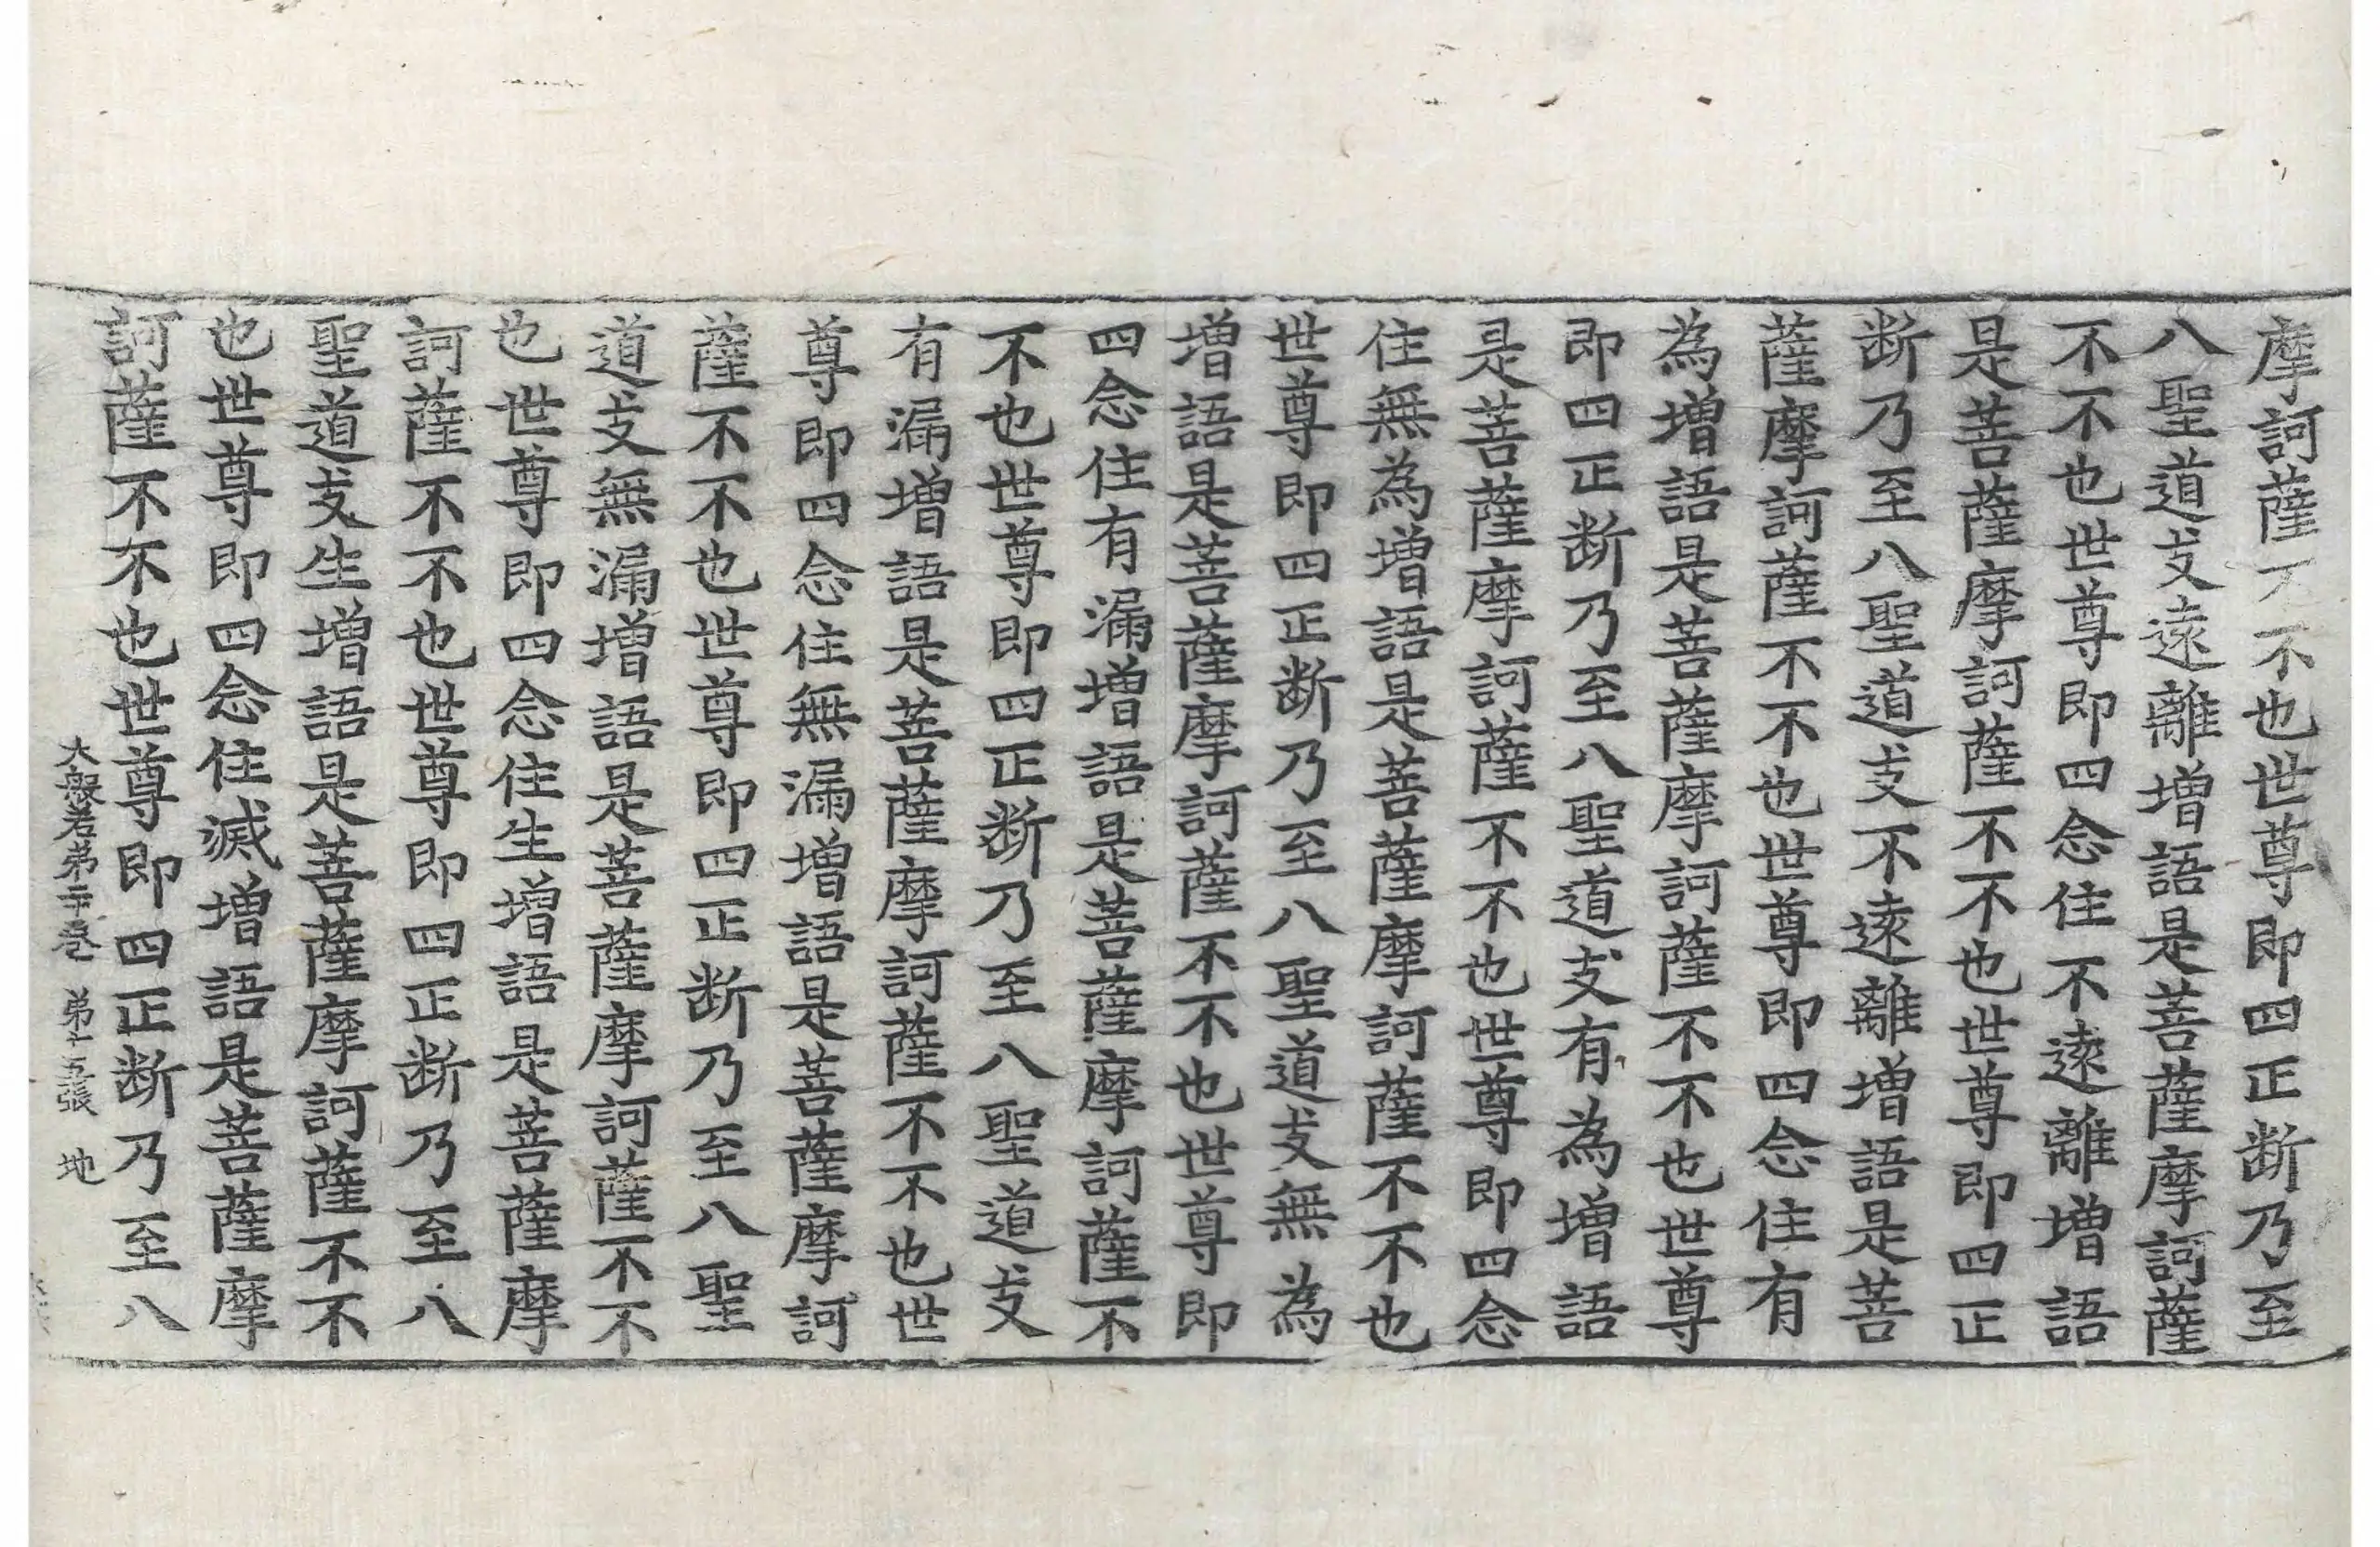 摩訶薩不不也世尊即四正断乃至
八聖道支遠離増語是菩薩摩訶薩
不不也世尊即四念住不遠離増語
是菩薩摩訶薩不不也世尊即四正
断乃至八聖道支不遠離増語是菩
薩摩訶薩不不也世尊即四念住有
為増語是菩薩摩訶薩不不也世尊
即四正断乃至八聖道支有為増語
是菩薩摩訶薩不不也世尊即四念
住無為増語是菩薩摩訶薩不不也
世尊即四正断乃至八聖道支無為
増語是菩薩摩訶薩不不也世尊即
四念住有漏増語是菩薩摩訶薩不
不也世尊即四正断乃至八聖道支
有漏増語是菩薩摩訶薩不不也世
尊即四念住無漏増語是菩薩摩訶
薩不不也世尊即四正断乃至八聖
道支無漏増語是菩薩摩訶薩不不
也世尊即四念住生増語是菩薩摩
訶薩不不也世尊即四正断乃至八
聖道支生増語是菩薩摩訶薩不不
也世尊即四念住滅増語是菩薩摩
訶薩不不也世尊即四正断乃至八
大般若第卷 第十五張 地